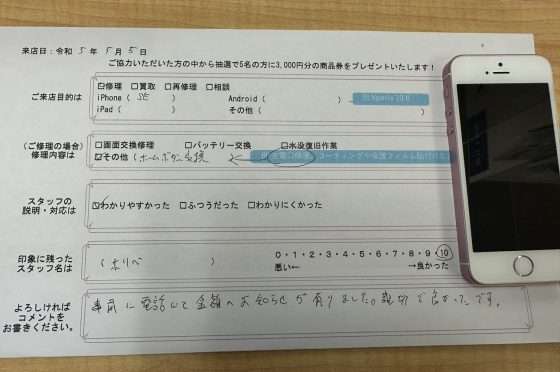 来店日:令和 5 年 5 月 5 日
ご協力いただいた方の中から抽選で5名の方に3,000円分の商品券をプレゼントいたします!
ご来店目的は
☑修理 □買取 □再修理 □相談
iPhone ( SE ) Android (
iPad ( ) その他 ( )
(ご修理の場合)
修理内容は
□画面交換修理 □バッテリー交換 □水没復旧作業
☑その他 (ホームボタン交換
スタッフの
説明・対応は
☑わかりやすかった □ふつうだった □わかりにくかった
印象に残った
スタッフ名は
( ホリベ )
0・1・2・3・4・5・6・7・8・9・10
悪い← →良かった
よろしければ
コメントを
お書きください。
事前に電話にて金額のお知らせが有りました。親切で良かったです。